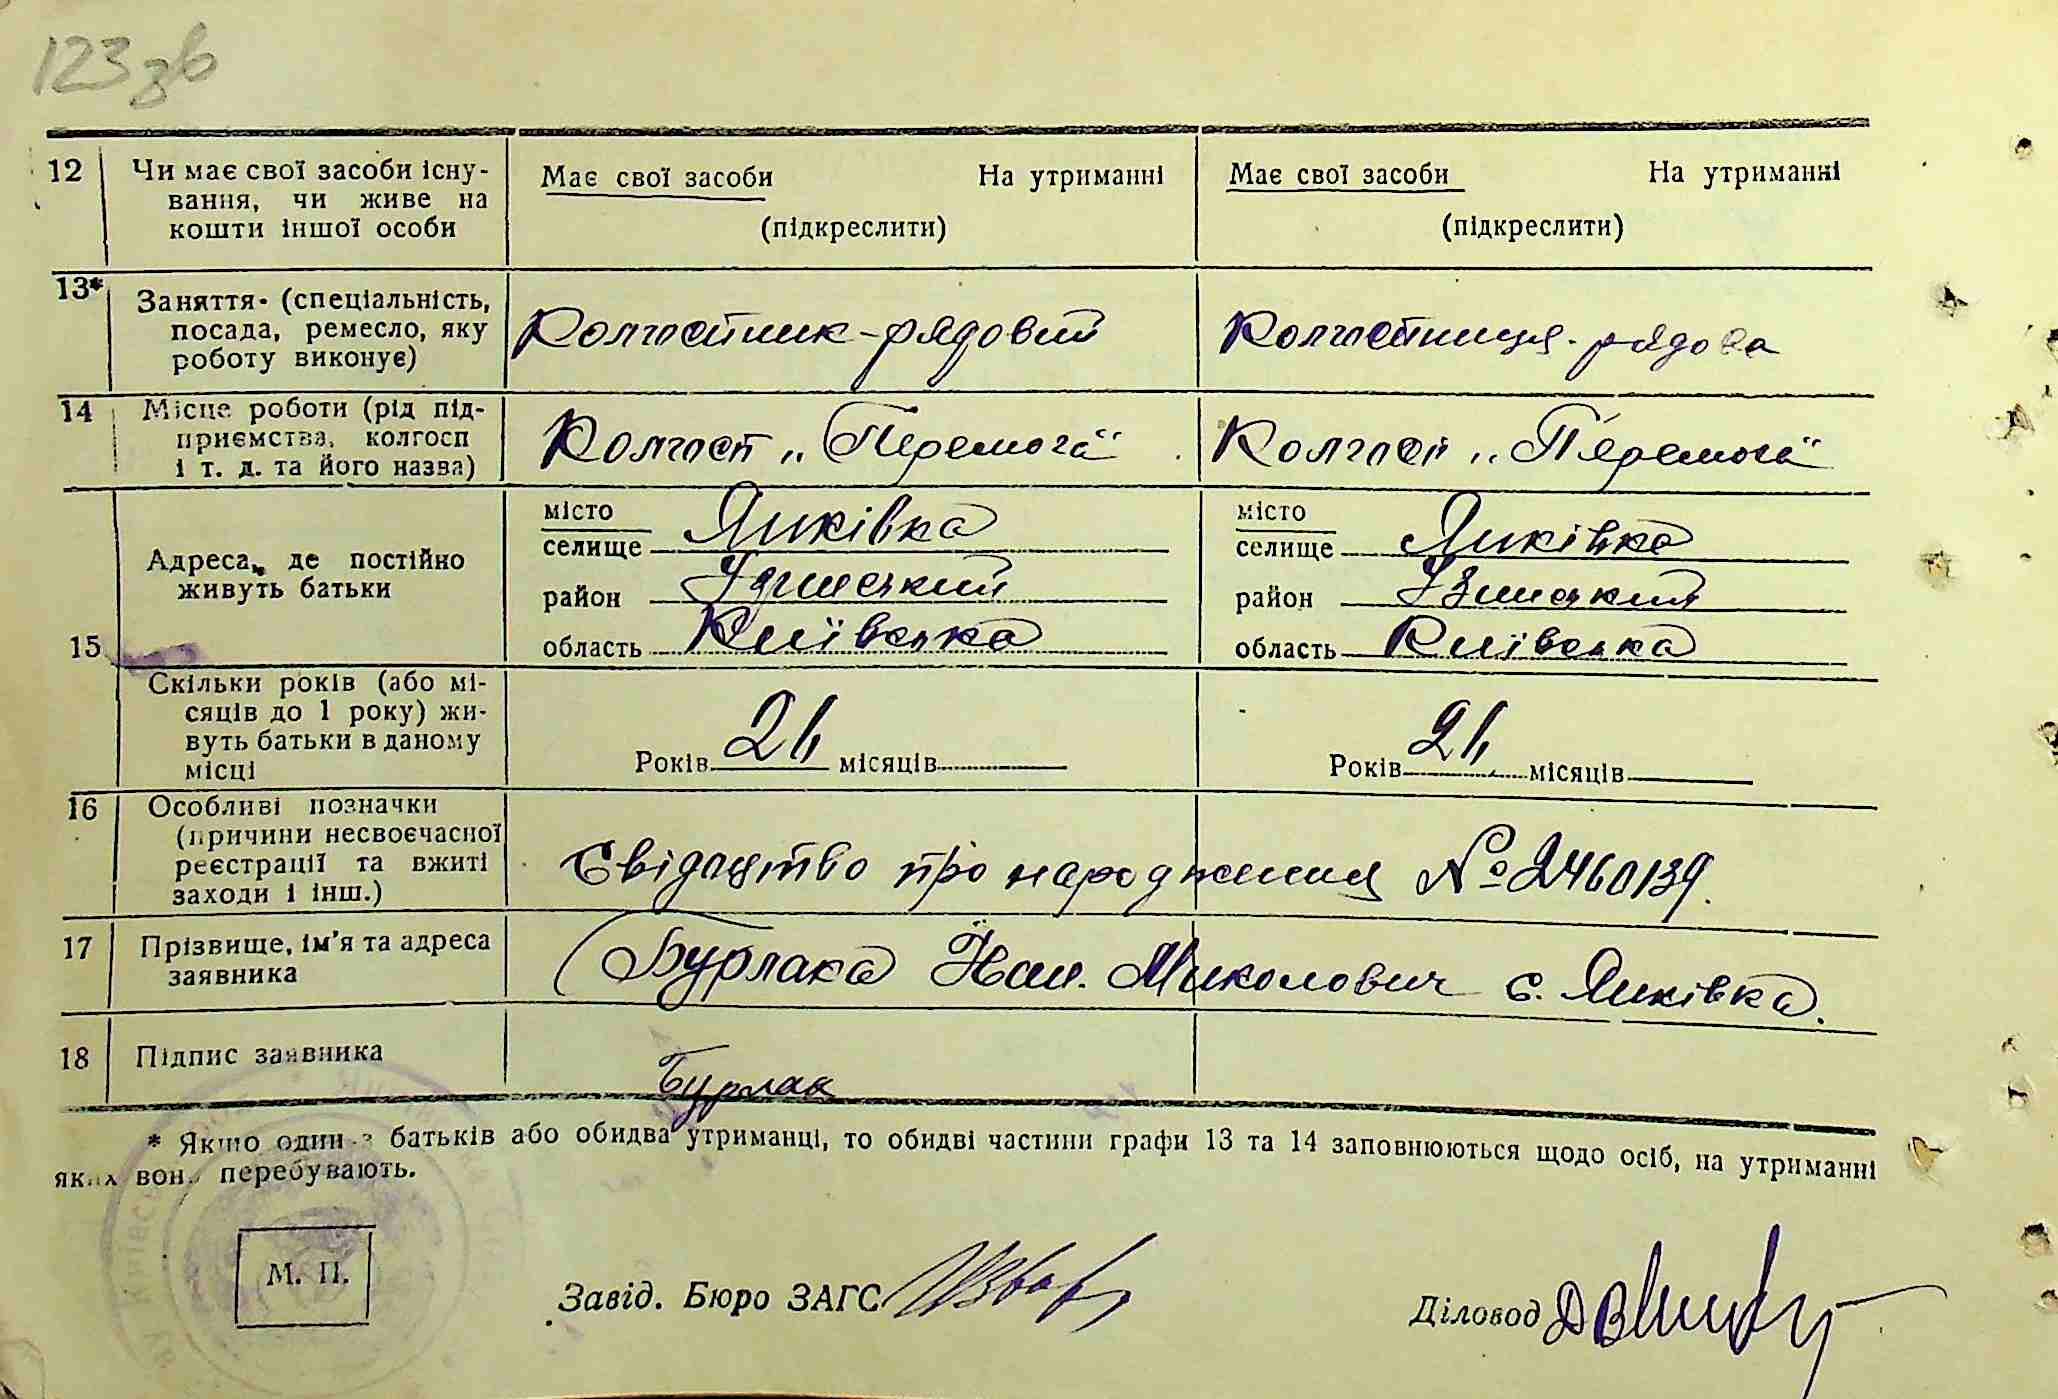 123 зв
12 Чи має свої засоби існу-
вання, чи живе на
кошти іншої особи
Має свої засоби На утриманні
(підкреслити)
Має свої засоби На утриманні
(підкреслити)
13* Заняття (спеціальність,
посада, ремесло, яку
роботу виконує)
Колгоспник-рядовий
Колгоспниця-рядова
14 Місце роботи (рід під-
приємства, колгосп
і т. д. та його назва)
Колгосп „Перемога"
Колгосп „Перемога"
15 Адреса, де постійно
живуть батьки
місто
селище Яиківка
район Узинський
область Київська
місто
селище Яиківка
район Узинський
область Київська
Скільки років (або мі-
сяців до 1 року) жи-
вуть батьки в даному
місці
Років 26 місяців
Років 26 місяців
16 Особливі позначки
(причини несвоєчасної
реєстрації та вжиті
заходи і інш.)
Свідоцтво про народження № 2460139.
17 Прізвище, ім'я та адреса
заявника
Бурлака Йван Миколович с. Яиківка.
18 Підпис заявника
Бурлак
* Якщо один з батьків або обидва утриманці, то обидві частини графи 13 та 14 заповнюються щодо осіб, на утриманні
яких вони перебувають.
М. П.
Завід. Бюро ЗАГС
Діловод